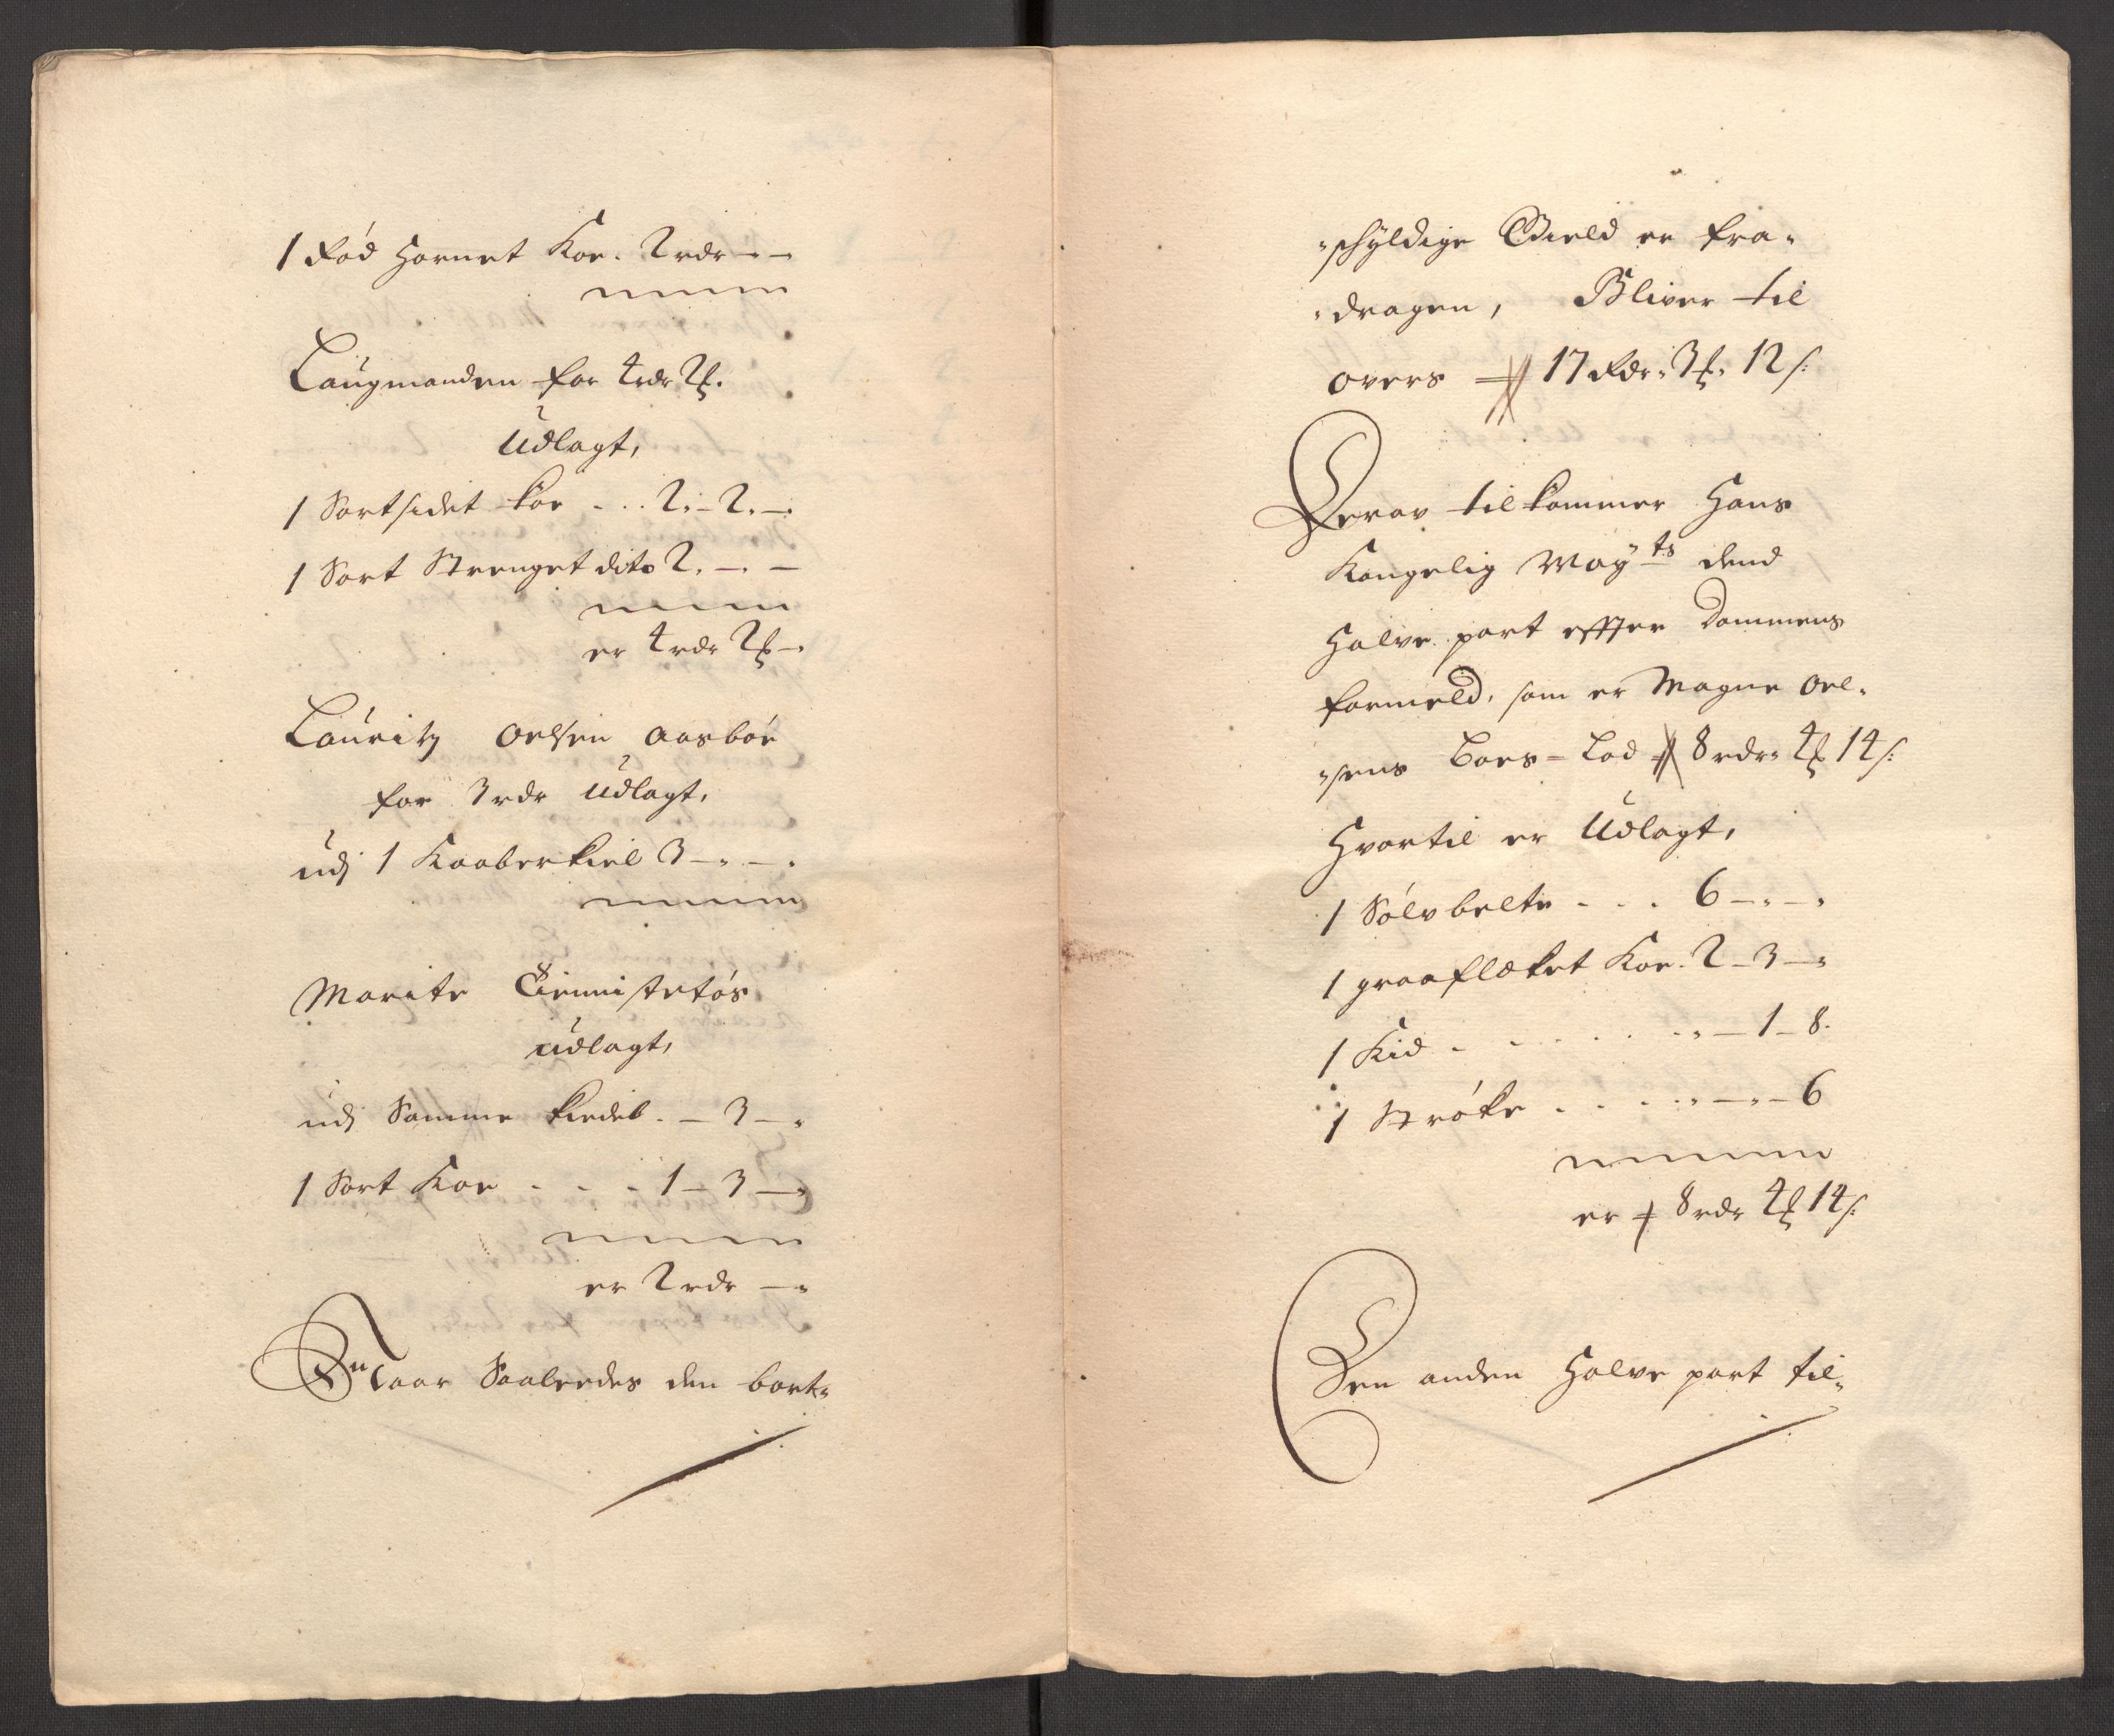 1 Rød Hornet Koe. 2 rdr - -
Laugmanden for 4 rdr 2 ℔.
Udlagt,
1 Sortsidet koe - . . 2. - 2. -.
1 Sort Strenget dito 2. -. -
er 4 rdr 2 ℔ -.
Lauritz Oelsen Aasbøe
for 3 rdr Udlagt,
udj 1 Kaaberkiel 3 -. -.
Marite Tiennistetøs
udlagt,
udj Samme kiedel. - 3 - .
1 Sort Koe - - - 1 - 3 -.
er 2 rdr -.
Naar Saaleedes den bort-
schyldige Gield er fra-
dragen, Bliver til
overs 17 Rdr. 3 ℔. 12 s:
Derav tilkommer Hans
Kongelig Mayts dend
Halve part effter Dommens
formeld, som er Magne Oel-
sens Boes-Lod 8 rdr. 4 ℔ 14 s:
Hvortil er Udlagt,
1 Sølvbelte - . . 6 -. -.
1 graaflæket Koe. 2 - 3 -.
1 Kid - . . . . . - 1 - 8.
1 Strøke . . . . . - . - 6
er 8 rdr 4 ℔ 14 s:
Den anden Halve part til-